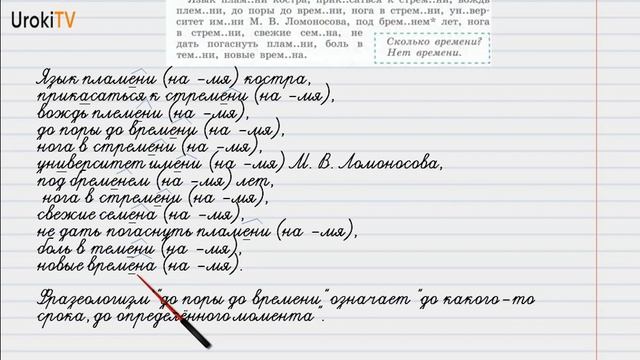 UrokiTV
Язык плам..ни костра, прик..саться к стрем..ни, вождь
плем..ни, до поры до врем..ни, нога в стрем..ни, ун..вер-
ситет им..ни М. В. Ломоносова, под брем..нем* лет, нога
в стрем..ни, свежие сем..на, не
дать погаснуть плам..ни, боль в
тем..ни, новые врем..на.
Сколько времени?
Нет времени.
Язык пламени (на -мя) костра,
прикасаться к стремени (на -мя),
вождь племени (на -мя),
до поры до времени (на -мя),
нога в стремени (на -мя),
университет имени (на -мя) М. В. Ломоносова,
под бременем (на -мя) лет,
нога в стремени (на -мя),
свежие семена (на -мя),
не дать погаснуть пламени (на -мя),
боль в темени (на -мя),
новые времена (на -мя).
Фразеологизм "до поры до времени" означает "до какого-то
срока, до определённого момента".